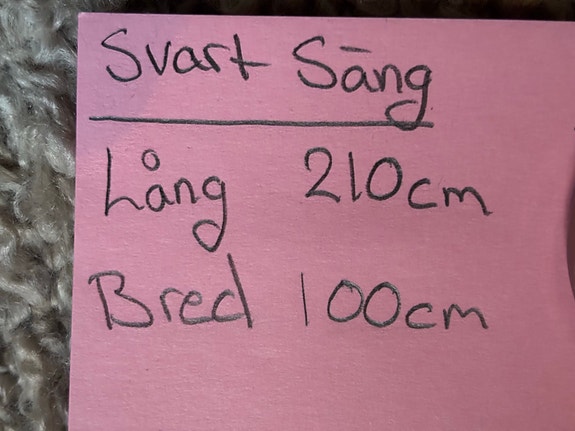 Svart Säng
Lång 210cm
Bred 100cm